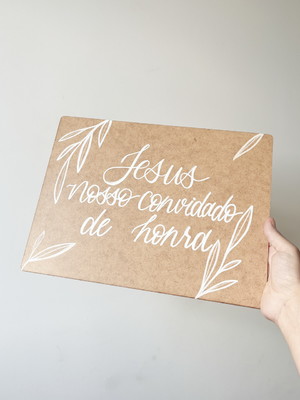 Jesus
nosso convidado
de honra